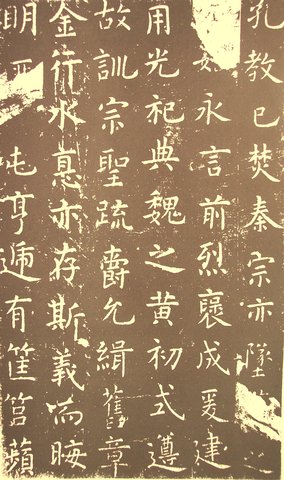 孔教已焚秦宗亦墜之
始永言前烈襃成爰建
用光祀典魏之黄初式遵
故訓宗聖疏爵允緝舊章
金行水悳亦存斯義而晦
明匪屯亨遞有筐筥蘋